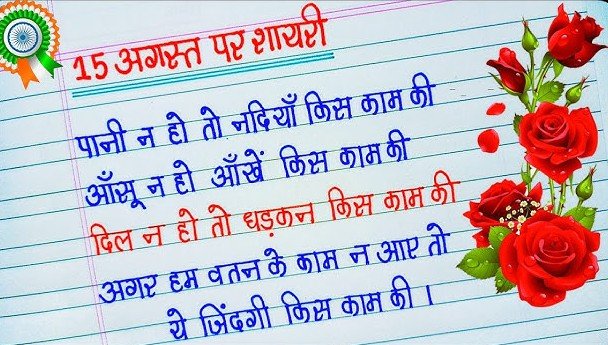 15 अगस्त पर शायरी
पानी न हो तो नदियाँ किस काम की
आँसू न हो आँखें किस काम की
दिल न हो तो धड़कन किस काम की
अगर हम वतन के काम न आए तो
ये ज़िंदगी किस काम की ।